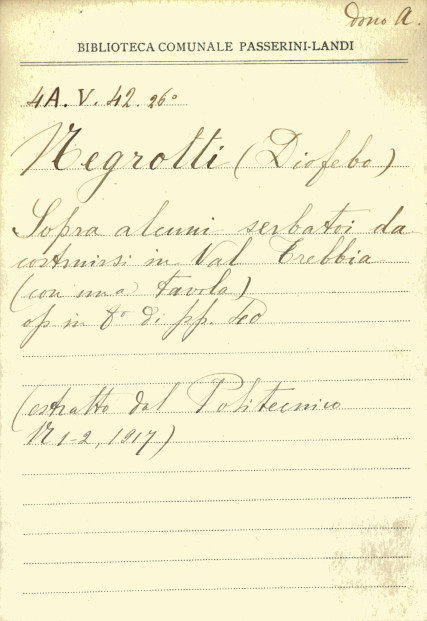 dono A.
BIBLIOTECA COMUNALE PASSERINI-LANDI
4A. V. 42. 26°
Negrotti (Diofebo)
Sopra alcuni serbatoi da
costruirsi in Val Trebbia
(con una tavola)
op in 8° di pp. 40
(estratto dal Politecnico
N 1-2, 1917)